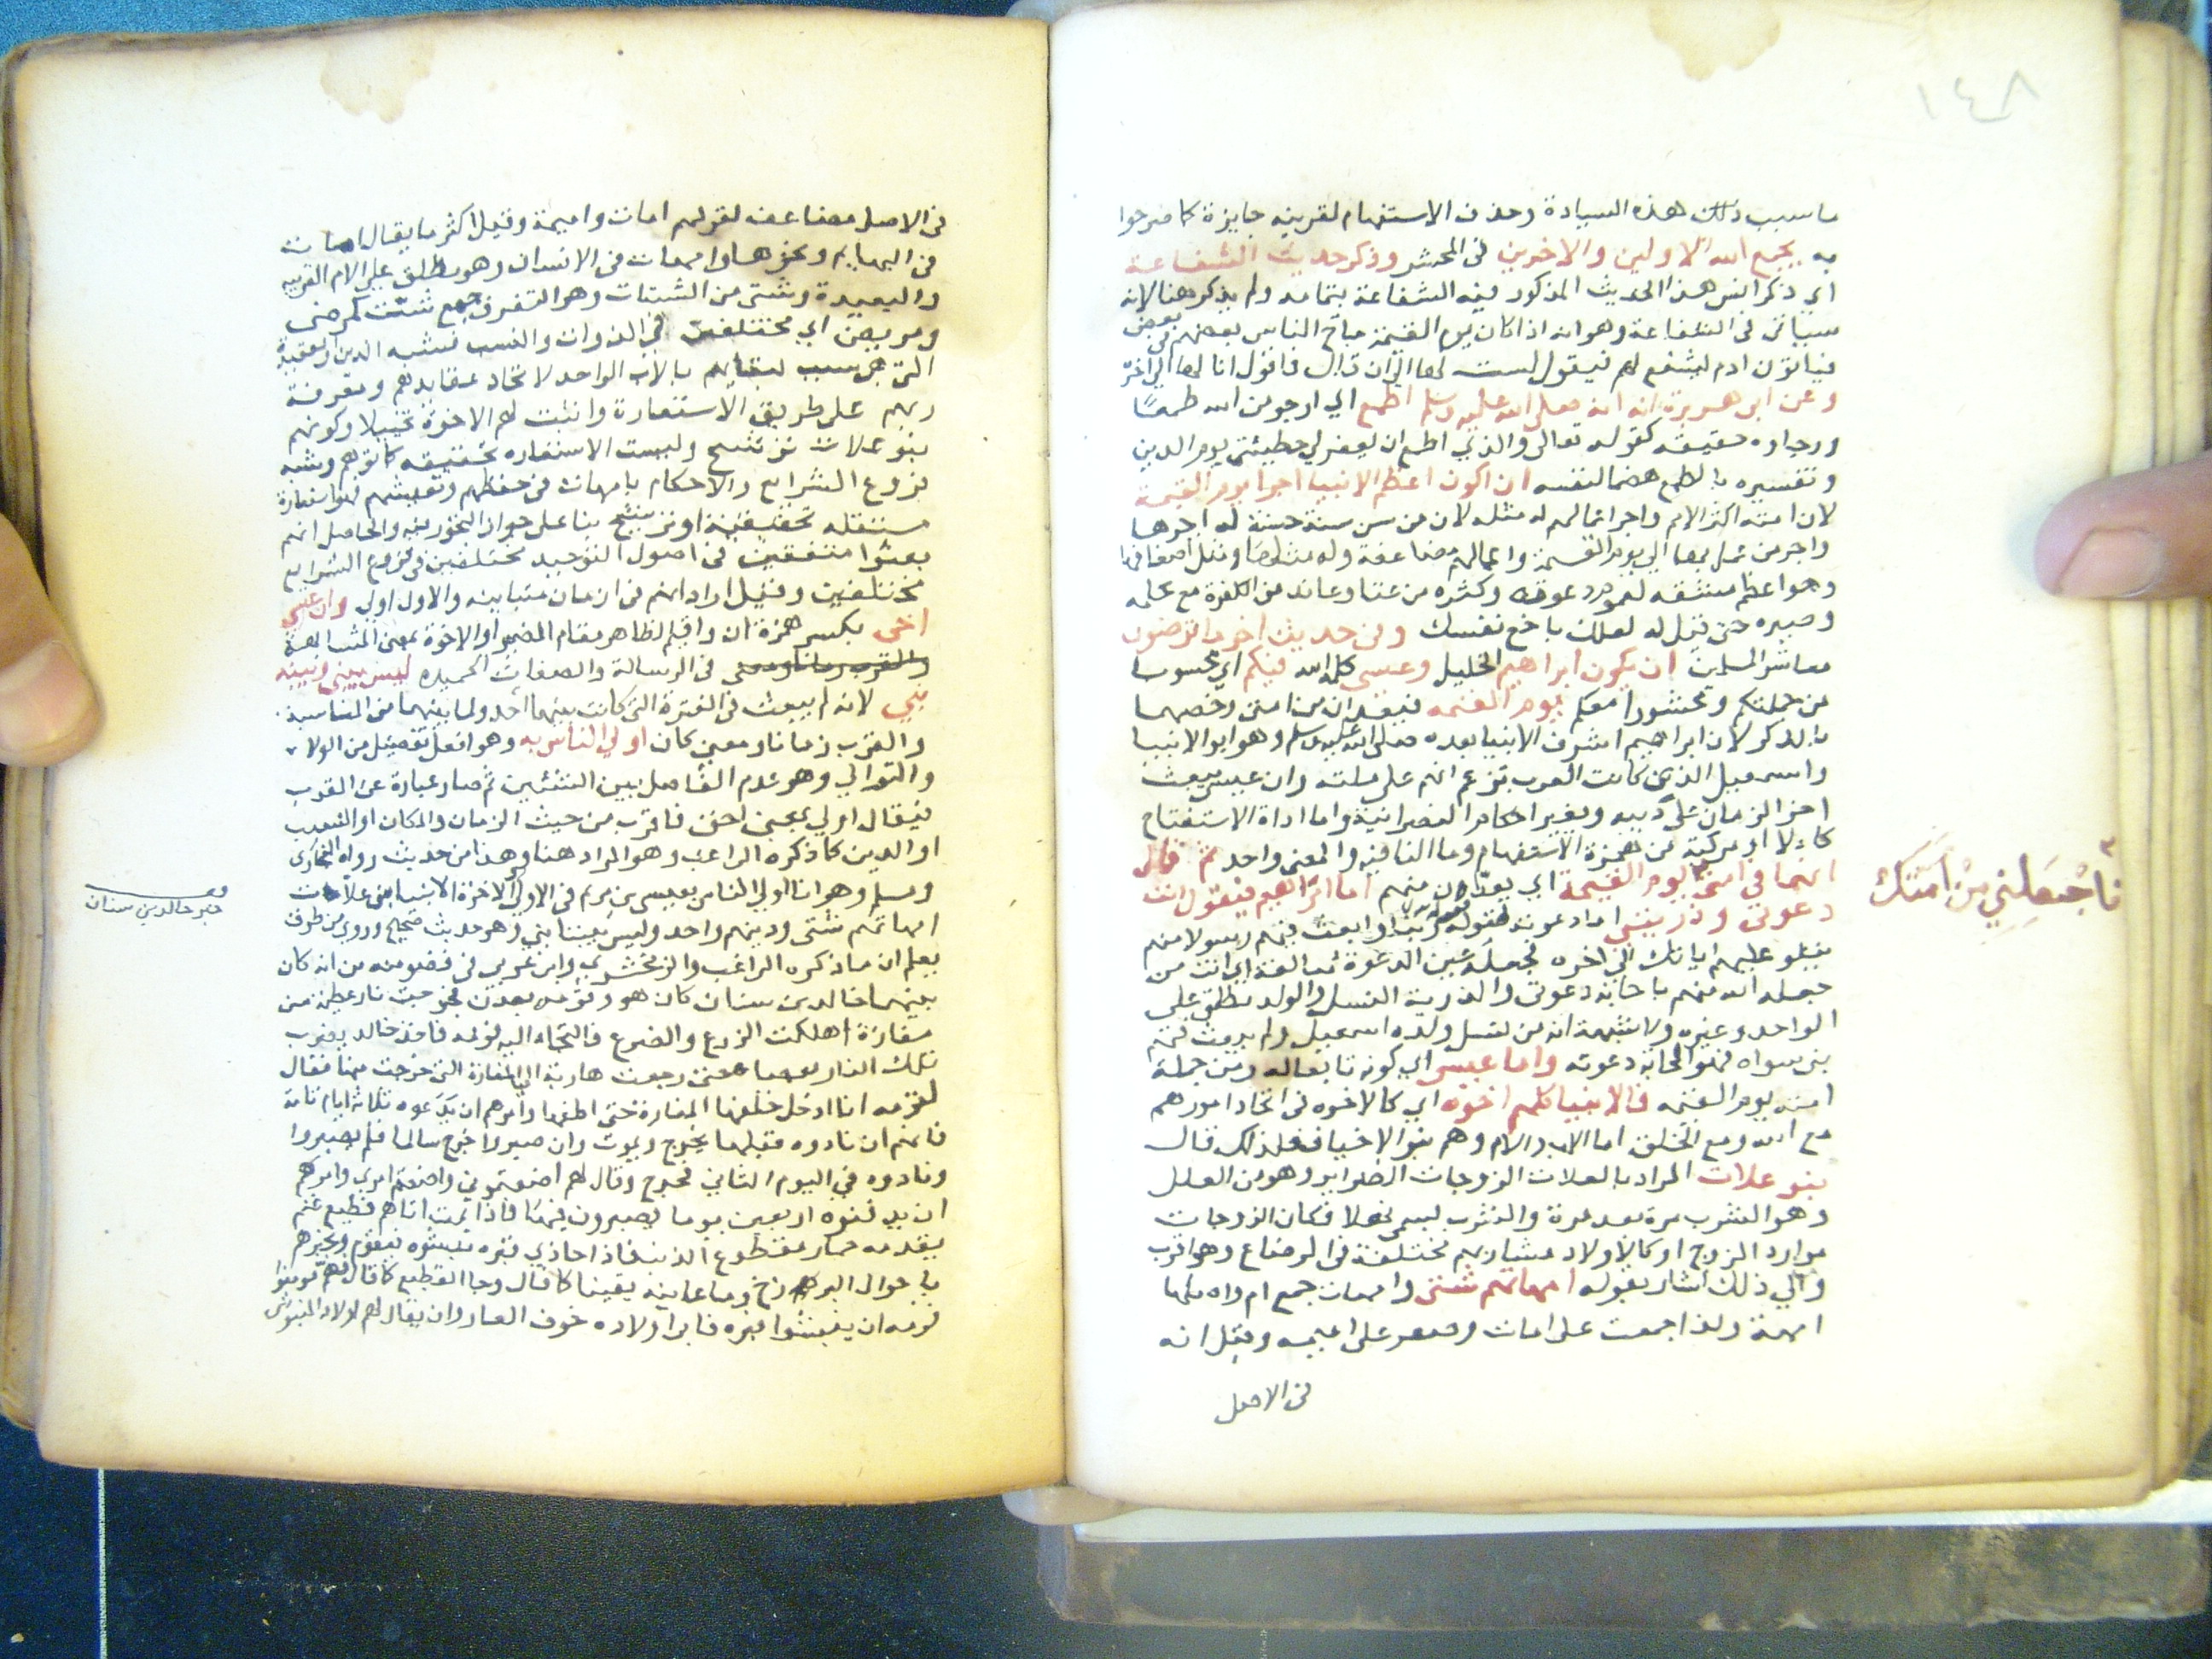 ١٤٨
ما سبب ذلك هذه السيادة وحذف الاستفهام لقرينه جايزة كما صرحوا
به يجمع الله الاولين والاخرين في المحشر وذكر حديث الشفاعة
اي ذكر انس هذا الحديث المذكور فيه الشفاعة بتمامه ولم يذكر هنا لانه
سياتي في الشفاعة وهو انه اذا كان يوم القيمة ماج الناس بعضهم في بعض
فياتون ادم ليشفع لهم فيقول لست لها الي ان قال فاقول انا لها الي اخره
وعن ابي هريرة انه صلى الله عليه وسلم اطمع اي ارجو من الله طمعا
ورجاوه حقيقه كقوله تعالى والذي اطمع ان يغفر لي خطيئتي يوم الدين
وتفسيره بالطمع هضما لنفسه ان اكون اعظم الانبيا اجرا يوم القيمة
لان امته اكثر الامم واجر اعمالهم له مثله لان من سن سنة حسنة له اجرها
واجر من عمل بها الي يوم القيمة واعمالهم مضاعفة وله مثلها
وهو اعظم مشقه لعموم دعوته وكثره من عتا وعاند من الكفرة مع حلمه
وصبره حتى نزل له لعلك باخع نفسك وفي حديث اخر اما ترضون
معاشر المسلمين ان يكون ابراهيم الخليل وعيسى كلمة الله فيكم اي محسوبا
من جملتكم ومحشورا معكم يوم القيمه فيعدان من امتي وخصهما
بالذكر لان ابراهيم اشرف الانبيا بعده صلى الله عليه وسلم وهو ابو الانبيا
واسمعيل الذي كانت العرب تزعم انهم على ملته وان عيسى يبعث
اخر الزمان على دينه ويغير احكام النصرانية واما اداة الاستفتاح
كالا او مركبة من همزة الاستفهام وما النافيه والمعنى واحد ثم قال
انهما في امتي يوم القيمة اي يعدان منهم اما ابراهيم فيقول انت
دعوتي وذريتي اما دعوته فقوله ربنا وابعث فيهم رسولا منهم
يتلو عليهم اياتك الي اخره فجعله عين الدعوة مبالغة اي انت من
جعله الله منهم باجابة دعوتي والذرية النسل والولد يطلق على
الواحد وغيره ولا شبهة انه من نسل ولده اسمعيل ولم يبعث فيهم
نبي سواه فهو اجابة دعوته واما عيسى اي كونه تابعا له ومن جملة
امته يوم القيمه فالانبيا كلهم اخوة اي كالاخوه في اتحاد امورهم
مع الله ومع الخلق اما الاب والام وهم بنو الاخياف فلذلك قال
بنو علات المراد بالعلات الزوجات الضراير وهو من العلل
وهو الشرب مرة بعد مرة والشرب يسمى نهلا فكان الزوجات
موارد الزوج او كالاولاد مشاربهم مختلفة في الرضاع وهو اقرب
والي ذلك اشار بقوله امهاتهم شتى وامهات جمع ام واصلها
امهة ولذا جمعت على امهات وصغر على اميمه وقيل انه
في الاصل
فاجعلني من امتك
في الاصل مضاعف لقولهم امات واميمة وقيل اكثر ما يقال امات
في البهايم ونحوها وامهات في الانسان وهو يطلق على الام القريبه
والبعيدة وشتى من الشتات وهو التفرق جمع شتت كمرضى
ومريض اي مختلفين في الذوات والنسب فشبه الدين او عقيدة
التي هي سبب لبقايهم بالاب الواحد لاتحاد عقايدهم ومعرفة
ربهم على طريق الاستعارة واثبت لهم الاخوة تخييلا وكونهم
بنو علات ترشيح وليست الاستعاره تحقيقيه كما توهم وشبه
فروع الشرايع والاحكام بامهات في حفظهم وتعيشهم فهو استعارة
مستقله تحقيقية او ترشيح بنا على جوازالتجوز فيه والحاصل انهم
بعثوا متفقين في اصول التوحيد مختلفين في فروع الشرايع
مختلفين وقيل اراد انهم في ازمان متباينه والاول اولى وان عيسى
اخي بكسر همزة ان واقيم الظاهر مقام المضمر او الاخوة بمعنى المشابهة
والقرب زمانا ومعنى في الرسالة والصفات الحميده ليس بيني وبينه
نبي لانه لم يبعث في الفترة التي كانت بينهما احد ولما بينهما من المناسبة
والقرب زمانا ومعنى كان اولي الناس به وهو افعل تفضيل من الولاء
والتوالي وهو عدم الفاصل بين الشيئين ثم صار عبارة عن القرب
فيقال اولي بمعنى احق فاقرب من حيث الزمان والمكان او النسب
او الدين كما ذكره الراغب وهو المراد هنا وهذا من حديث رواه البخاري
ومسلم وهو انا اولي الناس بعيسى بن مريم في الاولى والاخرة الانبيا بني علات
امهاتهم شتى ودينهم واحد وليس بيننا نبي وهو حديث صحيح وروي من طرق
يعلم ان ما ذكره الراغب والزمخشري وابن عربي في فصوصه من انه كان
بينهما خالد بن سنان كان هو وقومه بعدن فخرجت نار عظيمة من
مغارة اهلكت الزرع والضرع فالتجاء اليه قومه فاخذ خالد يضرب
تلك النار بعصا حتى رجعت هاربة الي المغارة التي خرجت منها فقال
لقومه انا ادخل خلفها المغارة حتى اطفيها وامرهم ان يدعوه ثلاثة ايام تامة
فانهم ان نادوه قبلها يخرج ويموت وان صبروا خرج سالما فلم يصبروا
ونادوه في اليوم الثاني فخرج وقال لهم اضعتموني واضعتم امري وامرهم
ان يدفنوه اربعين يوما يصبرون فيها فاذا تمت اتاهم قطيع غنم
يقدمه حمار مقطوع الذنب فاذا حاذي قبره نبشوه فيقوم ويخبرهم
باحوال البرزخ وما عاينه يقينا كما قال وجا القطيع كما قال فهم مومنوا
قومه ان ينبشوا قبره فابى اولاده خوف العار وان يقال لهم اولاد المنبوش
قصه
خبر خالد بن سنان